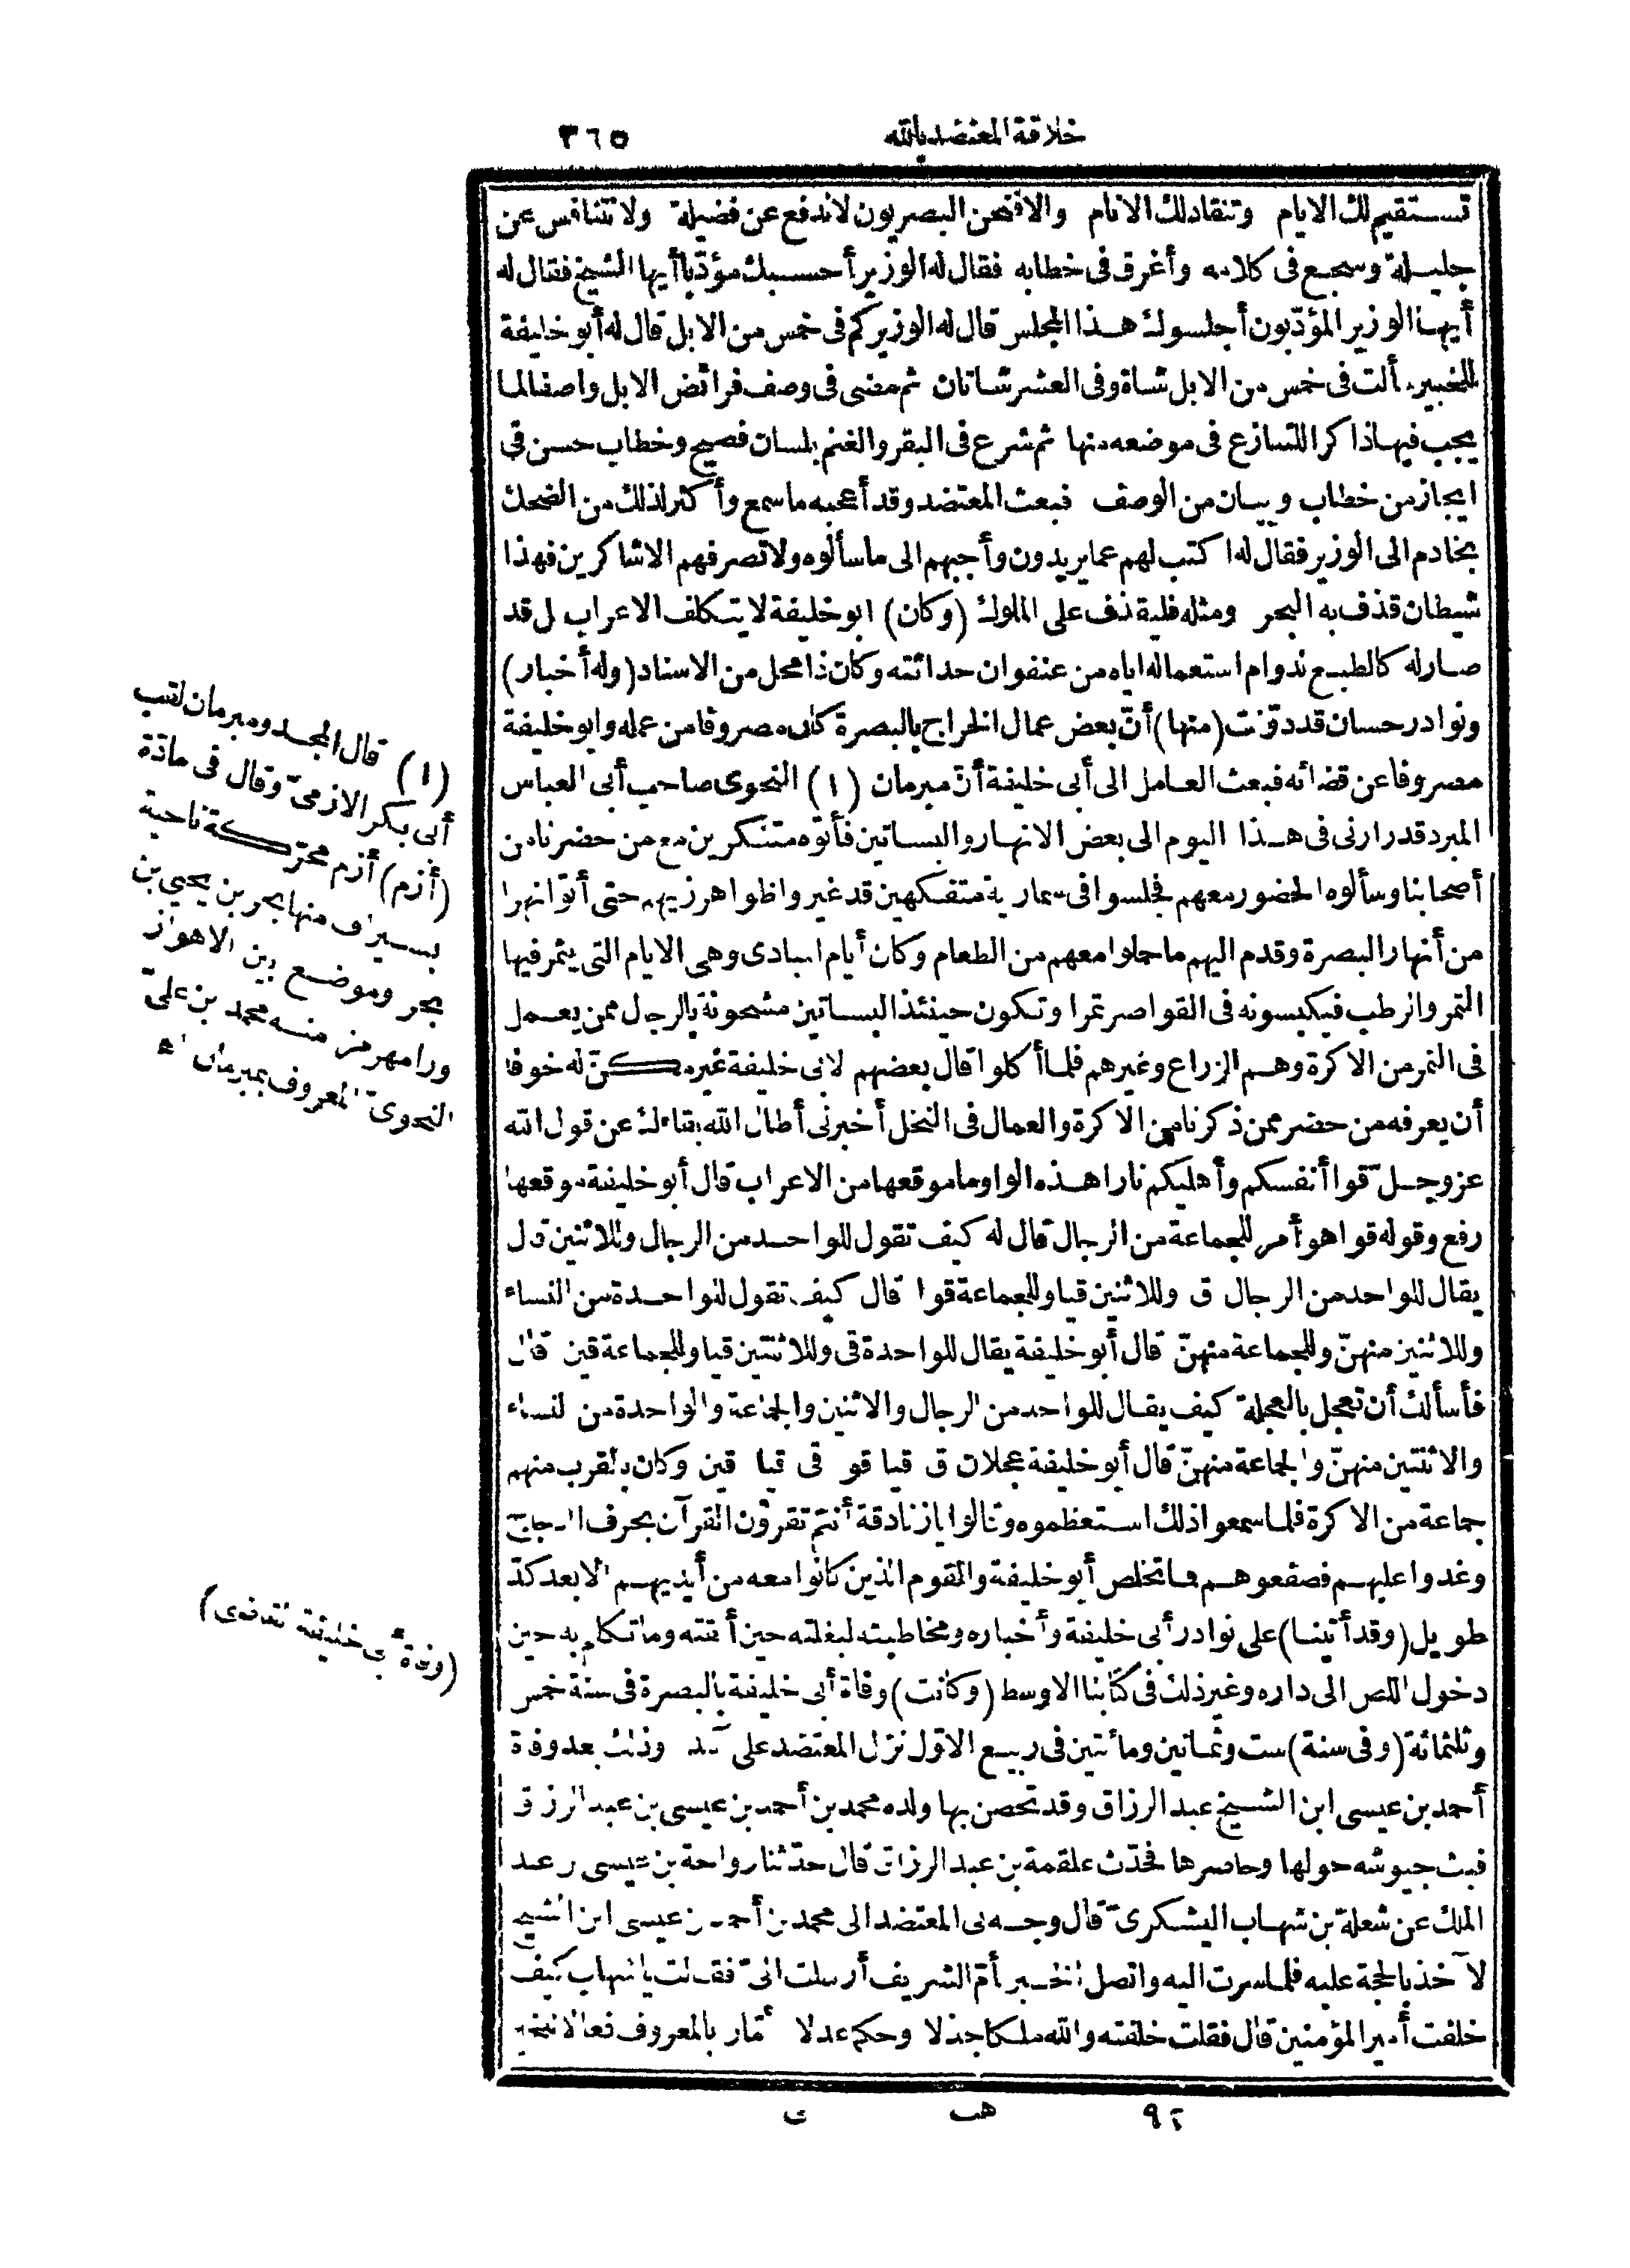 خلافة المعتضد بالله ٣٦٥
تستقيم لك الايام وتنقاد لك الانام والافنحن البصريون لاندفع عن فضيلة ولا نتنافس عن
جليلة وسجع فى كلامه وأغرق فى خطابه فقال له الوزير أحسبك مؤدّبا أيها الشيخ فقال له
أيها الوزير المؤدّبون أجلسوك هذا المجلس قال له الوزير كم فى خمس من الابل قال له أبو خليفة
للخبير سألت فى خمس من الابل شاة وفى العشر شاتان ثم مضى فى وصف فرائض الابل واصفا لما
يجب فيها ذاكرا للتنازع فى موضعه منها ثم شرع فى البقر والغنم بلسان فصيح وخطاب حسن فى
ايجاز من خطاب وبيان من الوصف فبعث المعتضد وقد أعجبه ما سمع وأكثر لذلك من الضحك
بخادم الى الوزير فقال له اكتب لهم عما يريدون وأجبهم الى ما سألوه ولا تصرفهم الا شاكرين فهذا
شيطان قذف به البحر ومثله فليقذف على الملوك (وكان) ابو خليفة لا يتكلف الاعراب ل قد
صار له كالطبع لدوام استعماله اياه من عنفوان حداثته وكان ذا محل من الاسناد (وله أخبار)
ونوادر حسان قد دوّنت (منها) أنّ بعض عمال الخراج بالبصرة كان مصروفا من عمله وابو خليفة
مصروفا عن قضائه فبعث العامل الى أبى خليفة أنّ مبرمان (١) النحوى صاحب أبى العباس
المبرد قد زارنى فى هذا اليوم الى بعض الانهار والبساتين فأتوه متنكرين مع من حضرنا من
أصحابنا وسألوه الحضور معهم فجلسوا فى سمارية متفكهين قد غيروا ظواهر زيهم حتى أتوا نهرا
من أنهار البصرة وقدم اليهم ما حملوا معهم من الطعام وكان أيام المبادى وهى الايام التى يثمر فيها
التمر والرطب فيكبسونه فى القواصر تمرا وتكون حينئذ البساتين مشحونة بالرجال ممن يعمل
فى التمر من الاكرة وهم الزراع وغيرهم فلما أكلوا قال بعضهم لابى خليفة غير مكنّ له خوفا
أن يعرفه من حضر ممن ذكرنا من الاكرة والعمال فى النخل أخبرنى أطال الله بقاءك عن قول الله
عز وجلّ قوا أنفسكم وأهليكم نارا هذه الواو ما موقعها من الاعراب قال أبو خليفة موقعها
رفع وقوله قوا هو أمر للجماعة من الرجال قال له كيف تقول للواحد من الرجال وللاثنين قال
يقال للواحد من الرجال ق وللاثنين قيا وللجماعة قوا قال كيف تقول للواحدة من النساء
وللاثنين منهنّ وللجماعة منهنّ قال أبو خليفة يقال للواحدة قى وللاثنتين قيا وللجماعة قين قال
فأسألك أن تعجل بالعجلة كيف يقال للواحد من الرجال والاثنين والجماعة والواحدة من النساء
والاثنتين منهنّ والجماعة منهنّ قال أبو خليفة عجلان ق قيا قو قى قيا قين وكان بالقرب منهم
جماعة من الاكرة فلما سمعوا ذلك استعظموه وقالوا يا زنادقة أنتم تقرؤن القرآن بحرف الدجاج
وغدوا عليهم فصفعوهم فما تخلص أبو خليفة والقوم الذين كانوا معه من أيديهم الا بعد كدّ
طويل (وقد أتينا) على نوادر أبى خليفة وأخباره ومخاطبته لبغلته حين ألقته وما تكلم به حين
دخول اللص الى داره وغير ذلك فى كتابنا الاوسط (وكانت) وفاة أبى خليفة بالبصرة فى سنة خمس
وثلثمائة (وفى سنة) ست وثمانين ومائتين فى ربيع الاوّل نزل المعتضد على آمد وذلك بعد وفاة
أحمد بن عيسى ابن الشيخ عبد الرزاق وقد تحصن بها ولده محمد بن أحمد بن عيسى بن عبد الرزاق
فبث جيوشه حولها وحاصرها فحدّث علقمة بن عبد الرزاق قال حدّثنا رواحة بن عيسى بن عبد
الملك عن شعلة بن شهاب اليشكرىّ قال وجه بى المعتضد الى محمد بن أحمد بن عيسى ابن الشيخ
لآخذ بالحجة عليه فلما سرت اليه واتصل الخبر بأمّ الشريف أرسلت الىّ فقالت يا شهاب كيف
خلفت أمير المؤمنين قال فقلت خلفته والله ملكا جذلا وحكما عدلا أمّارا بالمعروف فعالا للخير
(١) قال المجد ومبرمان لقب
أبى بكر الازمىّ وقال فى مادّة
(أزم) أزم محرّكة ناحية
بسيراف منها بحر بن يحيى بن
بحر وموضع بين الاهواز
ورامهرمز منه محمد بن علىّ
النحوىّ المعروف بمبرمان اه
(وفاة أبى خليفة القاضى)
٩٢ هب ت